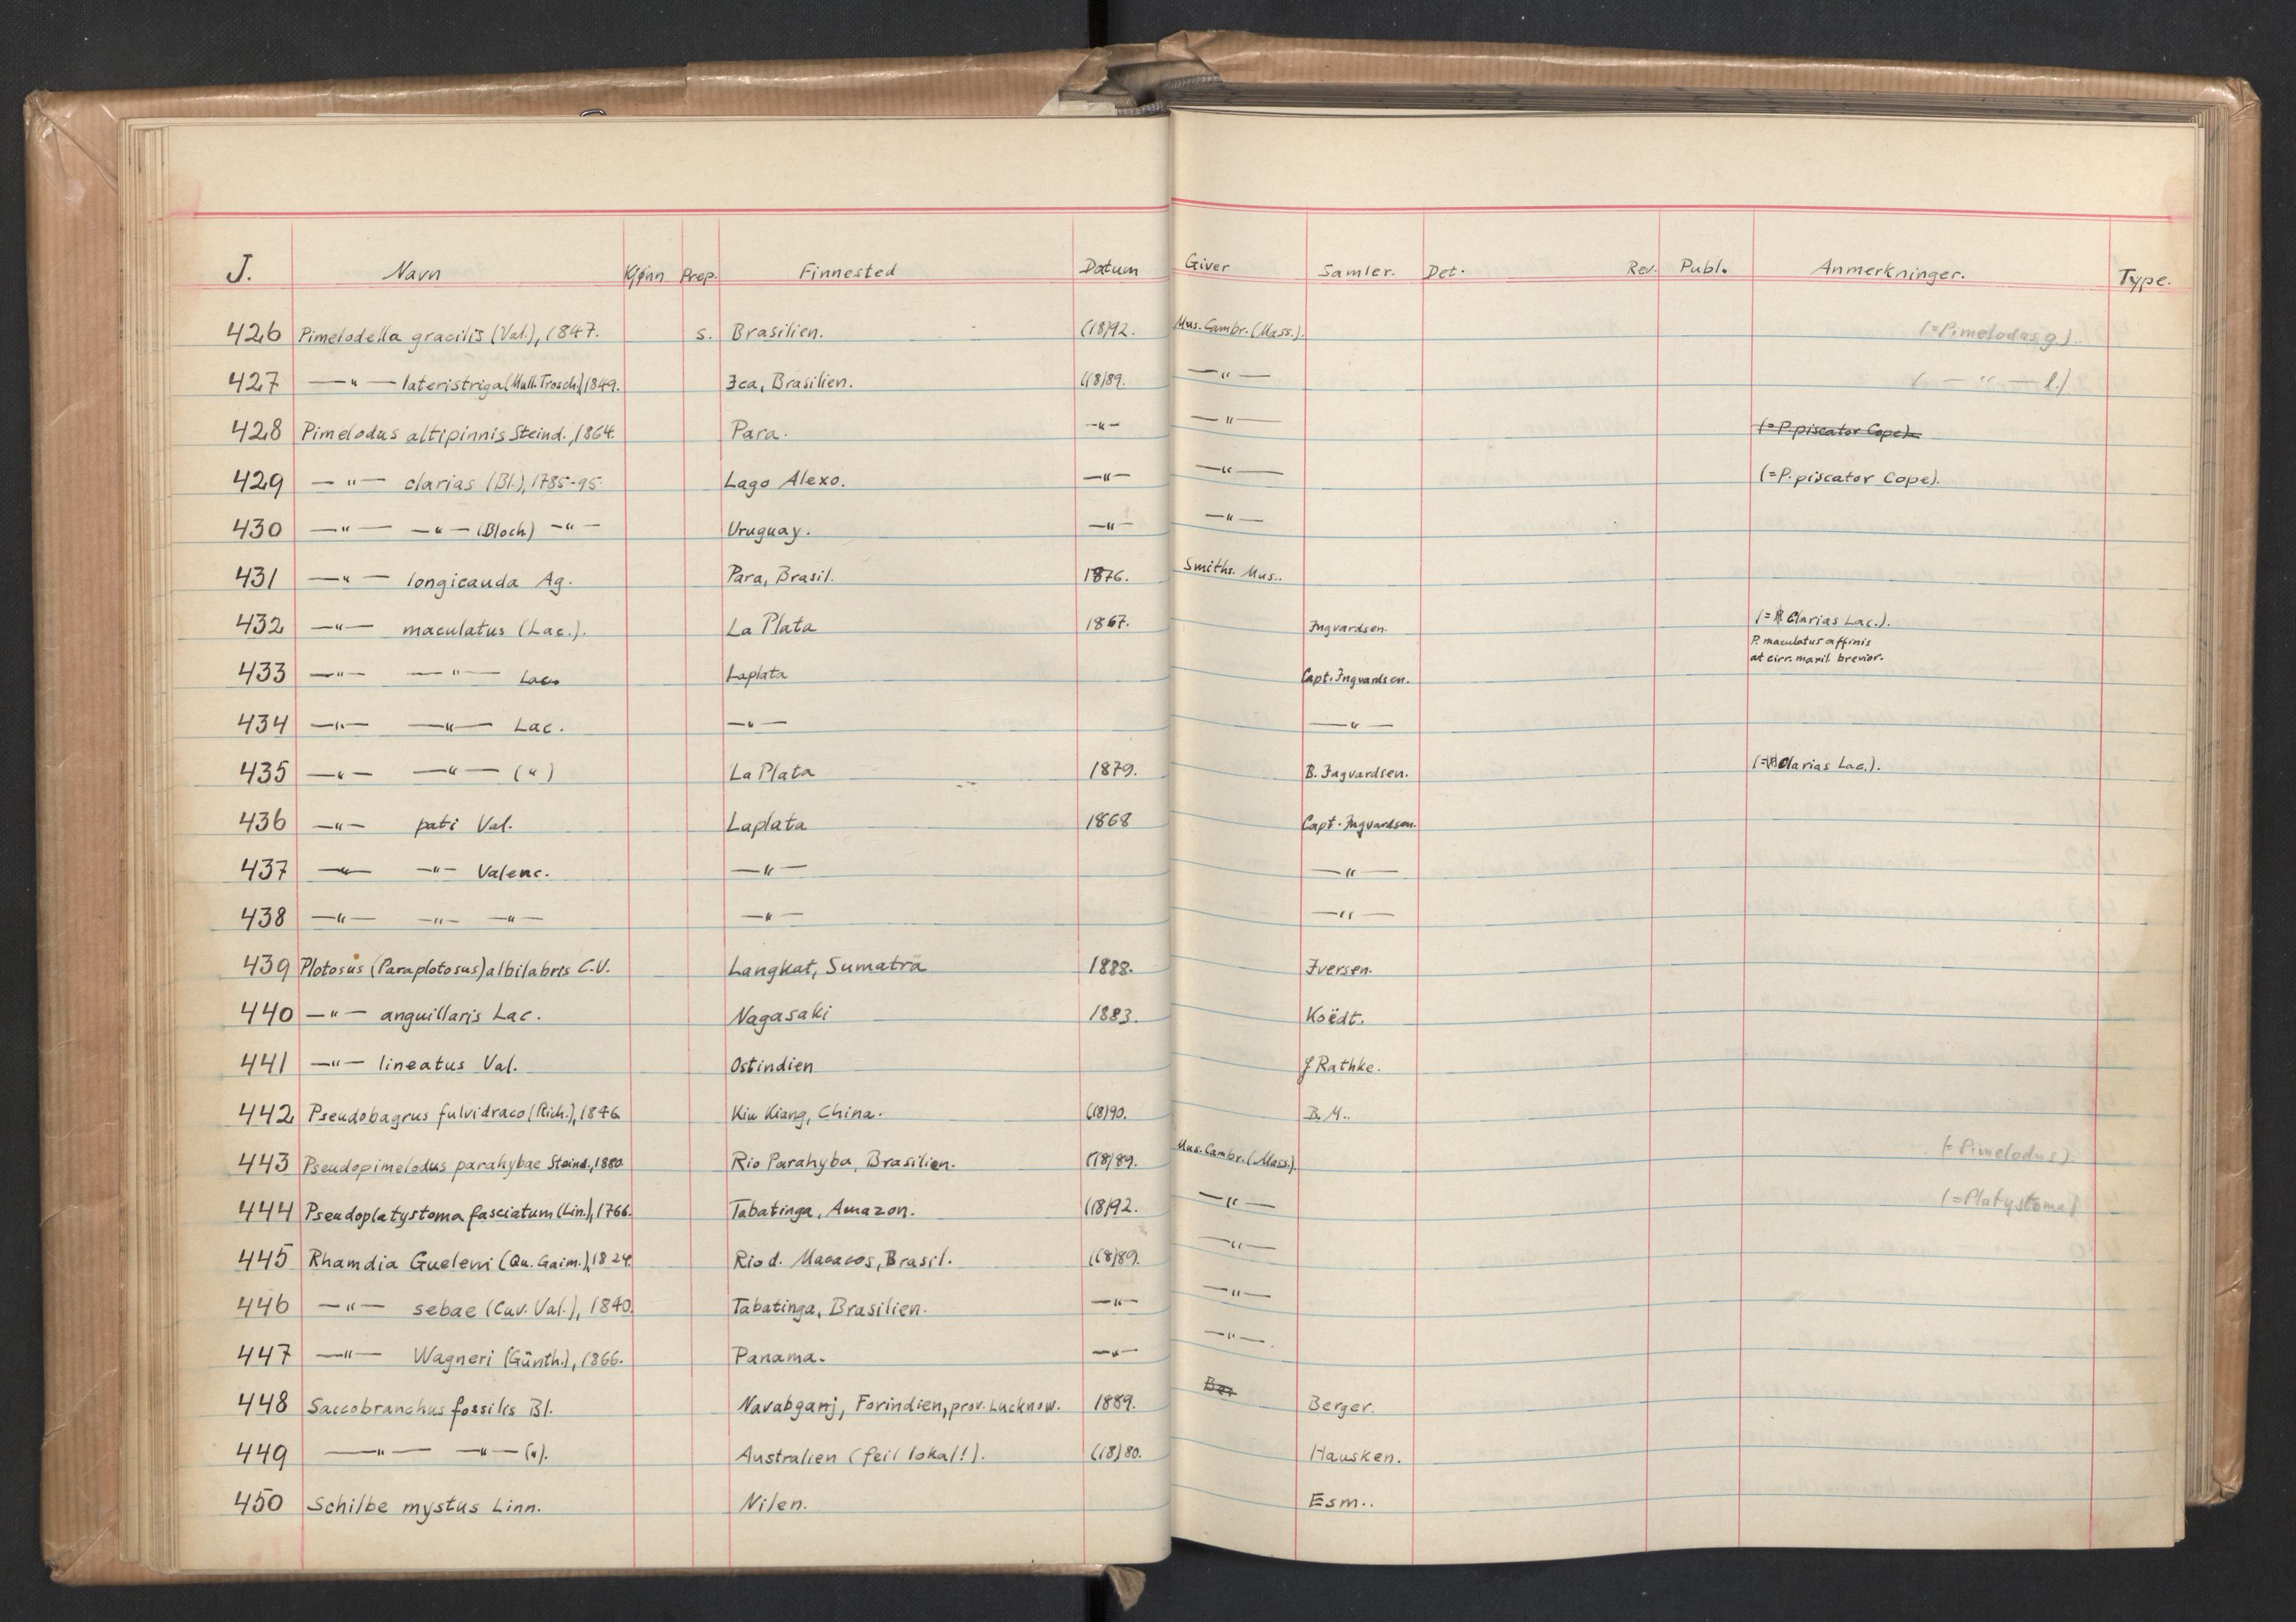 J. Navn Kjönn Prep. Finnested Datum Giver Samler. Det. Rev. Publ. Anmerkninger. Type.
426 Pimelodella gracilis (Val.), 1847. s. Brasilien. (18)92. Mus. Cambr. (Mass.). (=Pimelodus g.)
427 —"— lateristriga (Müll. Trosch.), 1849. Jca, Brasilien. (18)89. —"— ( —"— l.)
428 Pimelodus altipinnis Steind., 1864. Para. —"— —"— (=P. piscator Cope).
429 —"— clarias (Bl.), 1785-95. Lago Alexo. —"— —"— (=P. piscator Cope).
430 —"— —"— (Bloch) —"— Uruguay. —"— —"—
431 —"— longicauda Ag. Para, Brasil. 1876. Smiths. Mus..
432 —"— maculatus (Lac.). La Plata 1867. Ingvardsen. (= Clarias Lac.).
P. maculatus affinis
at cirr. maxil. brevior.
433 —"— —"— Lac. Laplata Capt. Ingvardsen.
434 —"— —"— Lac. —"— —"—
435 —"— —"— (") La Plata 1879. B. Ingvardsen. (= Clarias Lac.).
436 —"— pati Val. Laplata 1868 Capt. Ingvardsen.
437 —"— —"— Valenc. —"— —"—
438 —"— —"— —"— —"— —"—
439 Plotosus (Paraplotosus) albilabris C.V. Langkat, Sumatra 1888. Iversen.
440 —"— anguillaris Lac. Nagasaki 1883. Koëdt.
441 —"— lineatus Val. Ostindien J Rathke.
442 Pseudobagrus fulvidraco (Rich.), 1846 Kiu Kiang, China. (18)90. B. M..
443 Pseudopimelodus parahybae Steind., 1880 Rio Parahyba, Brasilien. (18)89. Mus. Cambr. (Mass.). (= Pimelodus).
444 Pseudoplatystoma fasciatum (Lin.), 1766. Tabatinga, Amazon. (18)92. —"— (=Platystoma)
445 Rhamdia Queleni (Qu. Gaim.), 1824. Rio d. Macacos, Brasil. (18)89. —"—
446 —"— sebae (Cuv. Val.), 1840. Tabatinga, Brasilien. —"— —"—
447 —"— Wagneri (Günth.), 1866. Panama. —"— —"—
448 Saccobranchus fossilis Bl. Navabganj, Forindien, prov. Lucknow. 1889. Ber Berger.
449 —"— —"— ("). Australien (feil lokal!). (18)80. Hausken.
450 Schilbe mystus Linn. Nilen. Esm..